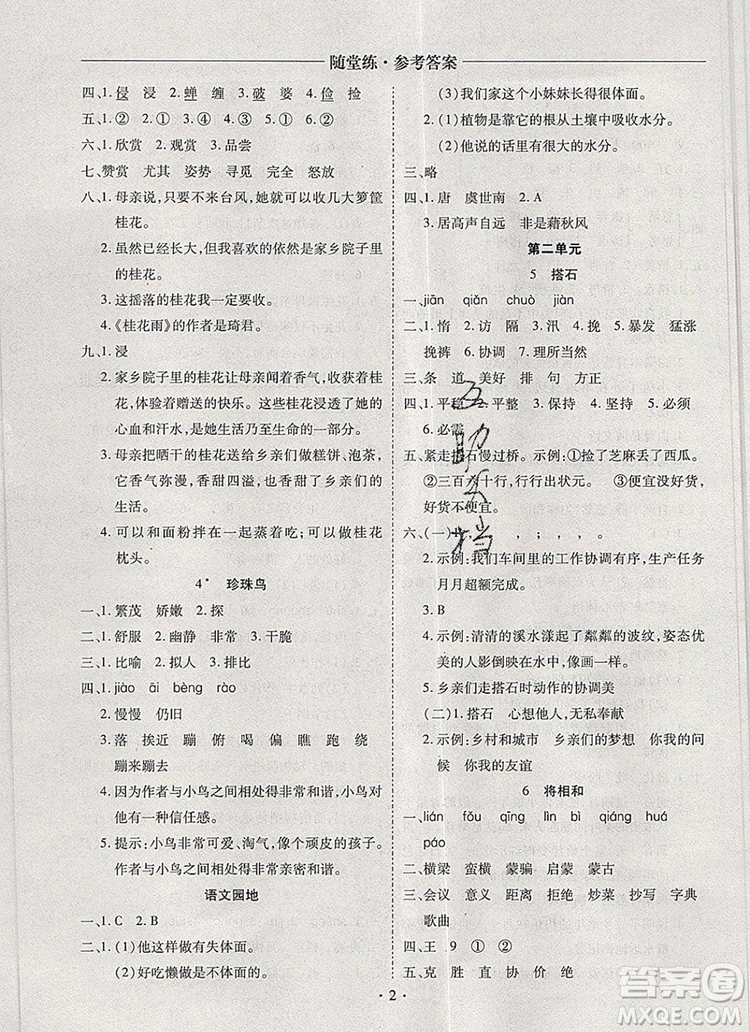 随堂练·参考答案
四、1.侵 浸 2.蝉 缠 3.破 婆 4.俭 捡
五、1.② ② ① 3.④ ① ③ ②
六、1.欣赏 2.观赏 3.品尝
七、赞赏 尤其 姿势 寻觅 完全 怒放
八、1.母亲说,只要不来台风,她就可以收几大箩筐
桂花。
2.虽然已经长大,但我喜欢的依然是家乡院子里
的桂花。
3.这摇落的桂花我一定要收。
4.《桂花雨》的作者是琦君。
九、1.浸
2.家乡院子里的桂花让母亲闻着香气,收获着桂
花,体验着赠送的快乐。这些桂花浸透了她的
心血和汗水,是她生活乃至生命的一部分。
3.母亲把晒干的桂花送给乡亲们做糕饼、泡茶,
它香气弥漫,香甜四溢,香甜着大人、孩子们的
生活。
4.可以和面粉拌在一起蒸着吃;可以做桂花
枕头。
4* 珍珠鸟
一、1.繁茂 娇嫩 2.探
二、1.舒服 2.幽静 非常 3.干脆
三、1.比喻 2.拟人 3.排比
四、1.jiào āi bèng rào
2.慢慢 仍旧
3.落 挨近 蹦 俯 喝 偏 瞧 跑 绕
蹦来蹦去
4.因为作者与小鸟之间相处得非常和谐,小鸟对
他有一种信任感。
5.提示:小鸟非常可爱、淘气,像个顽皮的孩子。
作者与小鸟之间相处得非常亲密和谐。
语文园地
一、1.C 2.B
二、1.(1)他这样做有失体面。
(2)好吃懒做是不体面的。
(3)我们家这个小妹妹长得很体面。
2.(1)植物是靠它的根从土壤中吸收水分。
(2)他说的话里有很大的水分。
三、略
四、1.唐 虞世南 2.A
3.居高声自远 非是藉秋风
第二单元
5 搭石
一、jiān qiǎn chuò jiàn
二、1.惰 2.访 隔 3.汛 4.挽 5.暴发 猛涨
挽裤 6.协调 7.理所当然
三、条 道 美好 排 句 方正
四、1.平稳 2.平整 3.保持 4.坚持 5.必须
6.必需
五、紧走搭石慢过桥。示例:①捡了芝麻丢了西瓜。
②三百六十行,行行出状元。 ③便宜没好货,
好货不便宜。
六、(一)1. , 。 , ; , 。 。
2.示例:我们车间里的工作协调有序,生产任务
月月超额完成。
3.B
4.示例:清清的溪水漾起了粼粼的波纹,姿态优
美的人影倒映在水中,简直像一幅画一样。
5.乡亲们走搭石时动作的协调美
(二)1.搭石 心想他人,无私奉献
2.示例:乡村和城市 乡亲们的梦想 你我的问
候 你我的友谊
6 将相和
一、lián fǒu qīng lìn bì qiáng huá
páo
二、横梁 蛮横 蒙骗 启蒙 蒙古
三、会议 意义 距离 拒绝 炒菜 抄写 字典
歌曲
四、王 9 ① ②
五、克 胜 直 协 价 绝
互助文档
·2·
答案圈
MXQE.COM